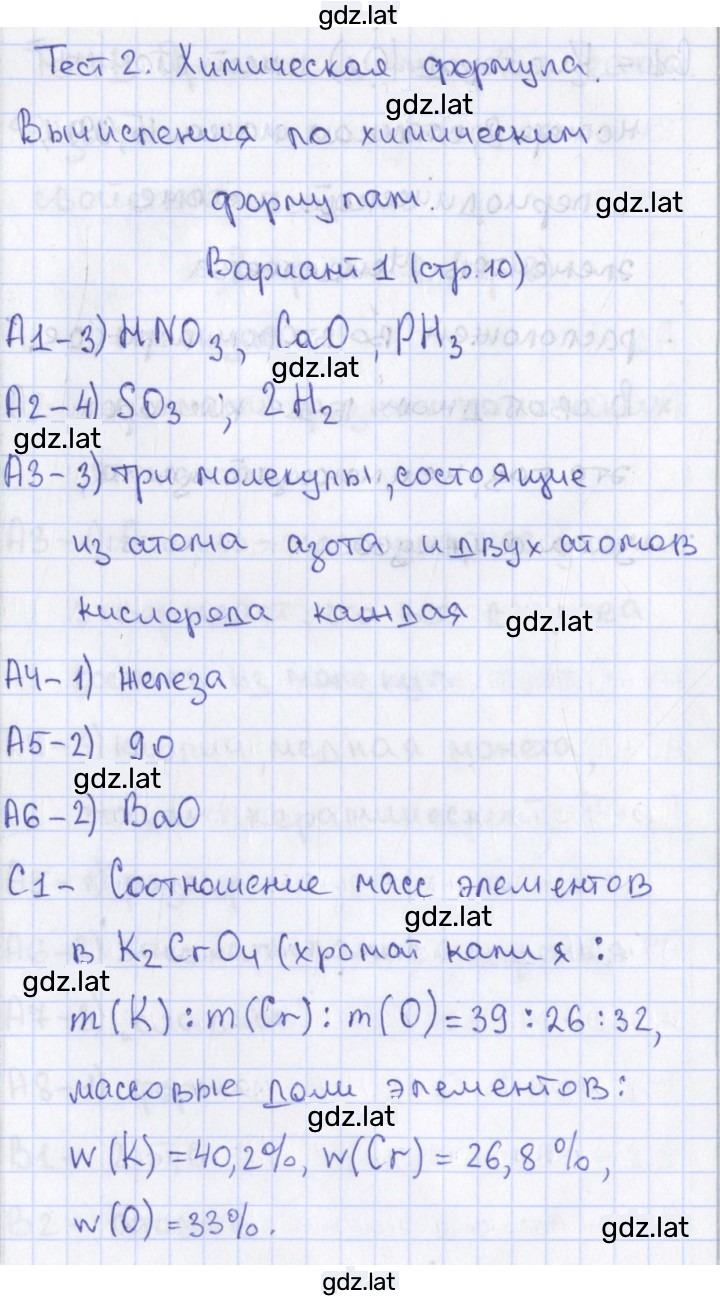 gdz.lat
Тест 2. Химическая формула.
gdz.lat
Вычисления по химическим
формулам.
gdz.lat
Вариант 1 (стр.10)
А1-3) HNO3, CaO, PH3
gdz.lat
А2-4) SO3; 2H2
gdz.lat
А3-3) три молекулы, состоящие
из атома азота и двух атомов
кислорода каждая
gdz.lat
А4-1) железа
А5-2) 90
gdz.lat
А6-2) BaO
С1- Соотношение масс элементов
gdz.lat
в K2CrO4 (хромат калия:
gdz.lat
m(K):m(Cr):m(O)=39:26:32,
массовые доли элементов:
gdz.lat
w(K)=40,2%, w(Cr)=26,8%,
w(O)=33%.
gdz.lat
gdz.lat